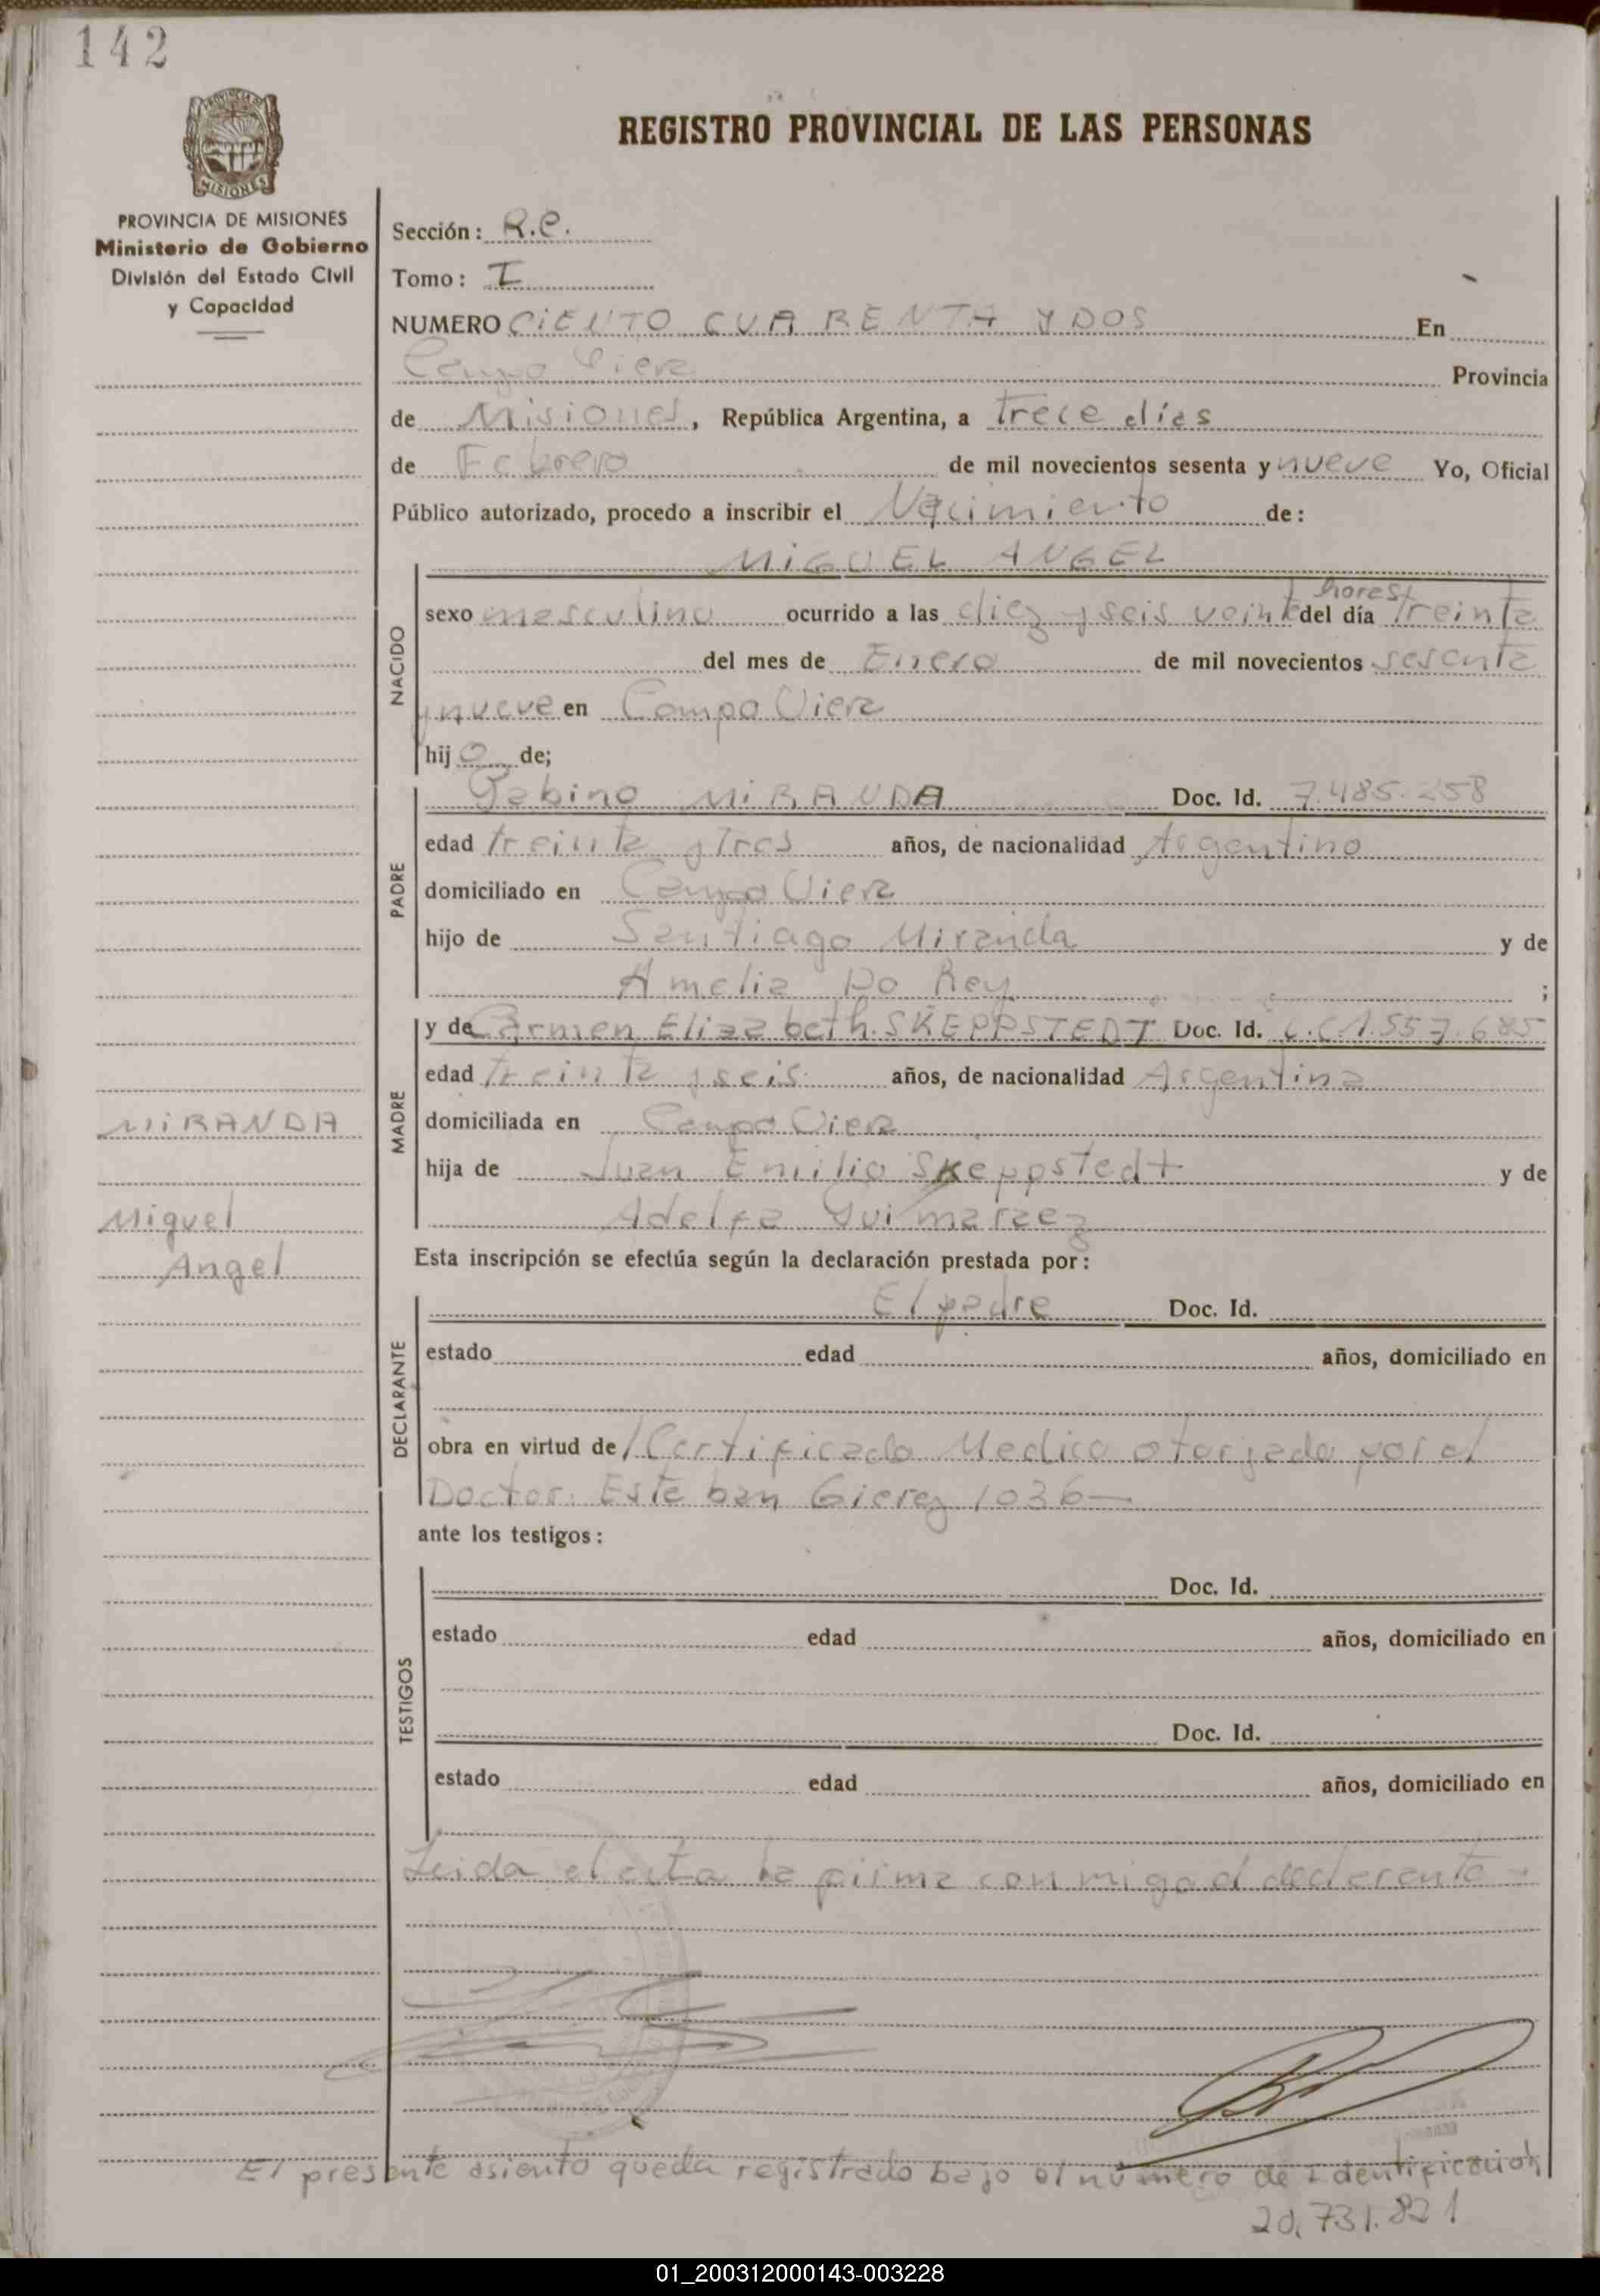 142
PROVINCIA DE MISIONES
MISIONES
PROVINCIA DE MISIONES
Ministerio de Gobierno
División del Estado Civil
y Capacidad
REGISTRO PROVINCIAL DE LAS PERSONAS
Sección: R.C.
Tomo: I
NUMERO CIENTO CUARENTA Y DOS En
Campo Viera Provincia
de Misiones, República Argentina, a trece días
de Febrero de mil novecientos sesenta y nueve Yo, Oficial
Público autorizado, procedo a inscribir el Nacimiento de:
MIGUEL ANGEL
horas
NACIDO
sexo masculino ocurrido a las diez y seis veinte del día treinta
del mes de Enero de mil novecientos sesenta
y nueve en Campo Viera
hijo de;
PADRE
Gabino MIRANDA Doc. Id. 7.485.258
edad treinta y tres años, de nacionalidad Argentino
domiciliado en Campo Viera
hijo de Santiago Miranda y de
Amelia Do Rey ;
MADRE
y de Carmen Elizabeth SKEPPSTEDT Doc. Id. L.C 1.557.685
edad treinta y seis años, de nacionalidad Argentina
domiciliada en Campo Viera
hija de Juan Emilio Skeppstedt y de
Adelfa Guimaraez
MIRANDA
Miguel
Angel
Esta inscripción se efectúa según la declaración prestada por:
DECLARANTE
El padre Doc. Id.
estado edad años, domiciliado en
obra en virtud de / Certificado Medico otorjado por el
Doctor: Esteban Gierez 1036—
ante los testigos:
TESTIGOS
Doc. Id.
estado edad años, domiciliado en
Doc. Id.
estado edad años, domiciliado en
Leida el acta la firma conmigo el declarante
El presente asiento queda registrado bajo el número de Identificación
20.731.821
01_200312000143-003228